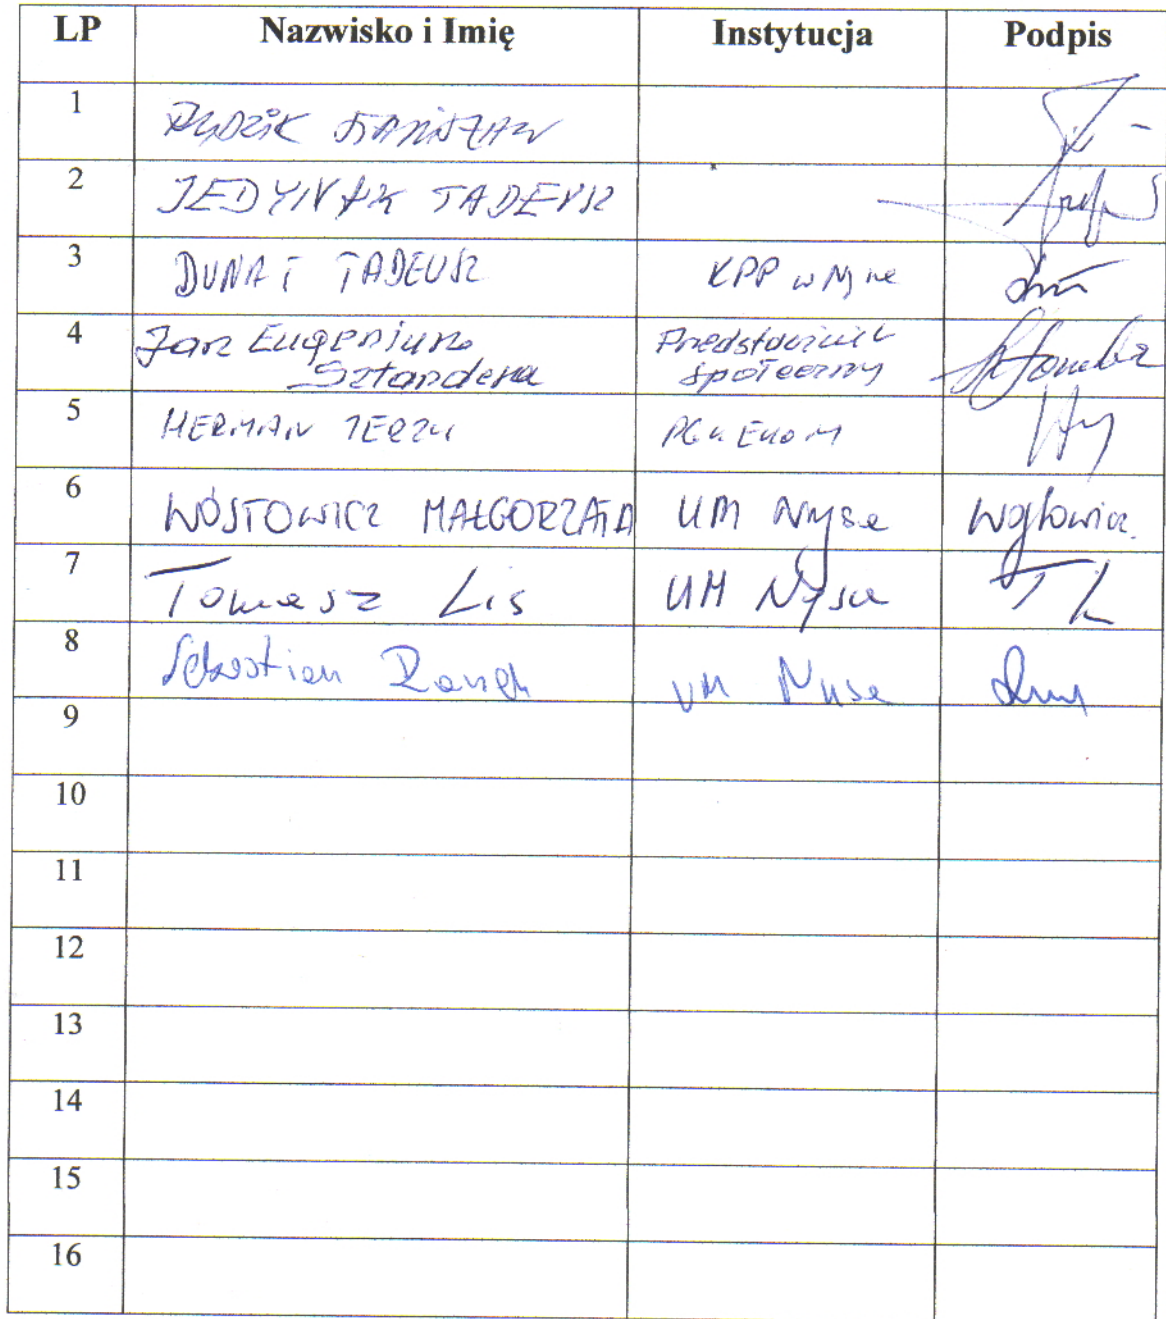 LP Nazwisko i Imię Instytucja Podpis
1 STANISŁAW
2 JEDYNAK TADEUSZ
3 DUNAT TADEUSZ KPP w Nysie
4 Jan Eugeniusz Przedstawiciel
Sztandera społeczny
5 HERMAN JERZY EKOM
6 WÓJTOWICZ MAŁGORZATA UM Nysa
7 Tomasz Lis UM Nysa
8 Sebastian UM Nysa
9
10
11
12
13
14
15
16